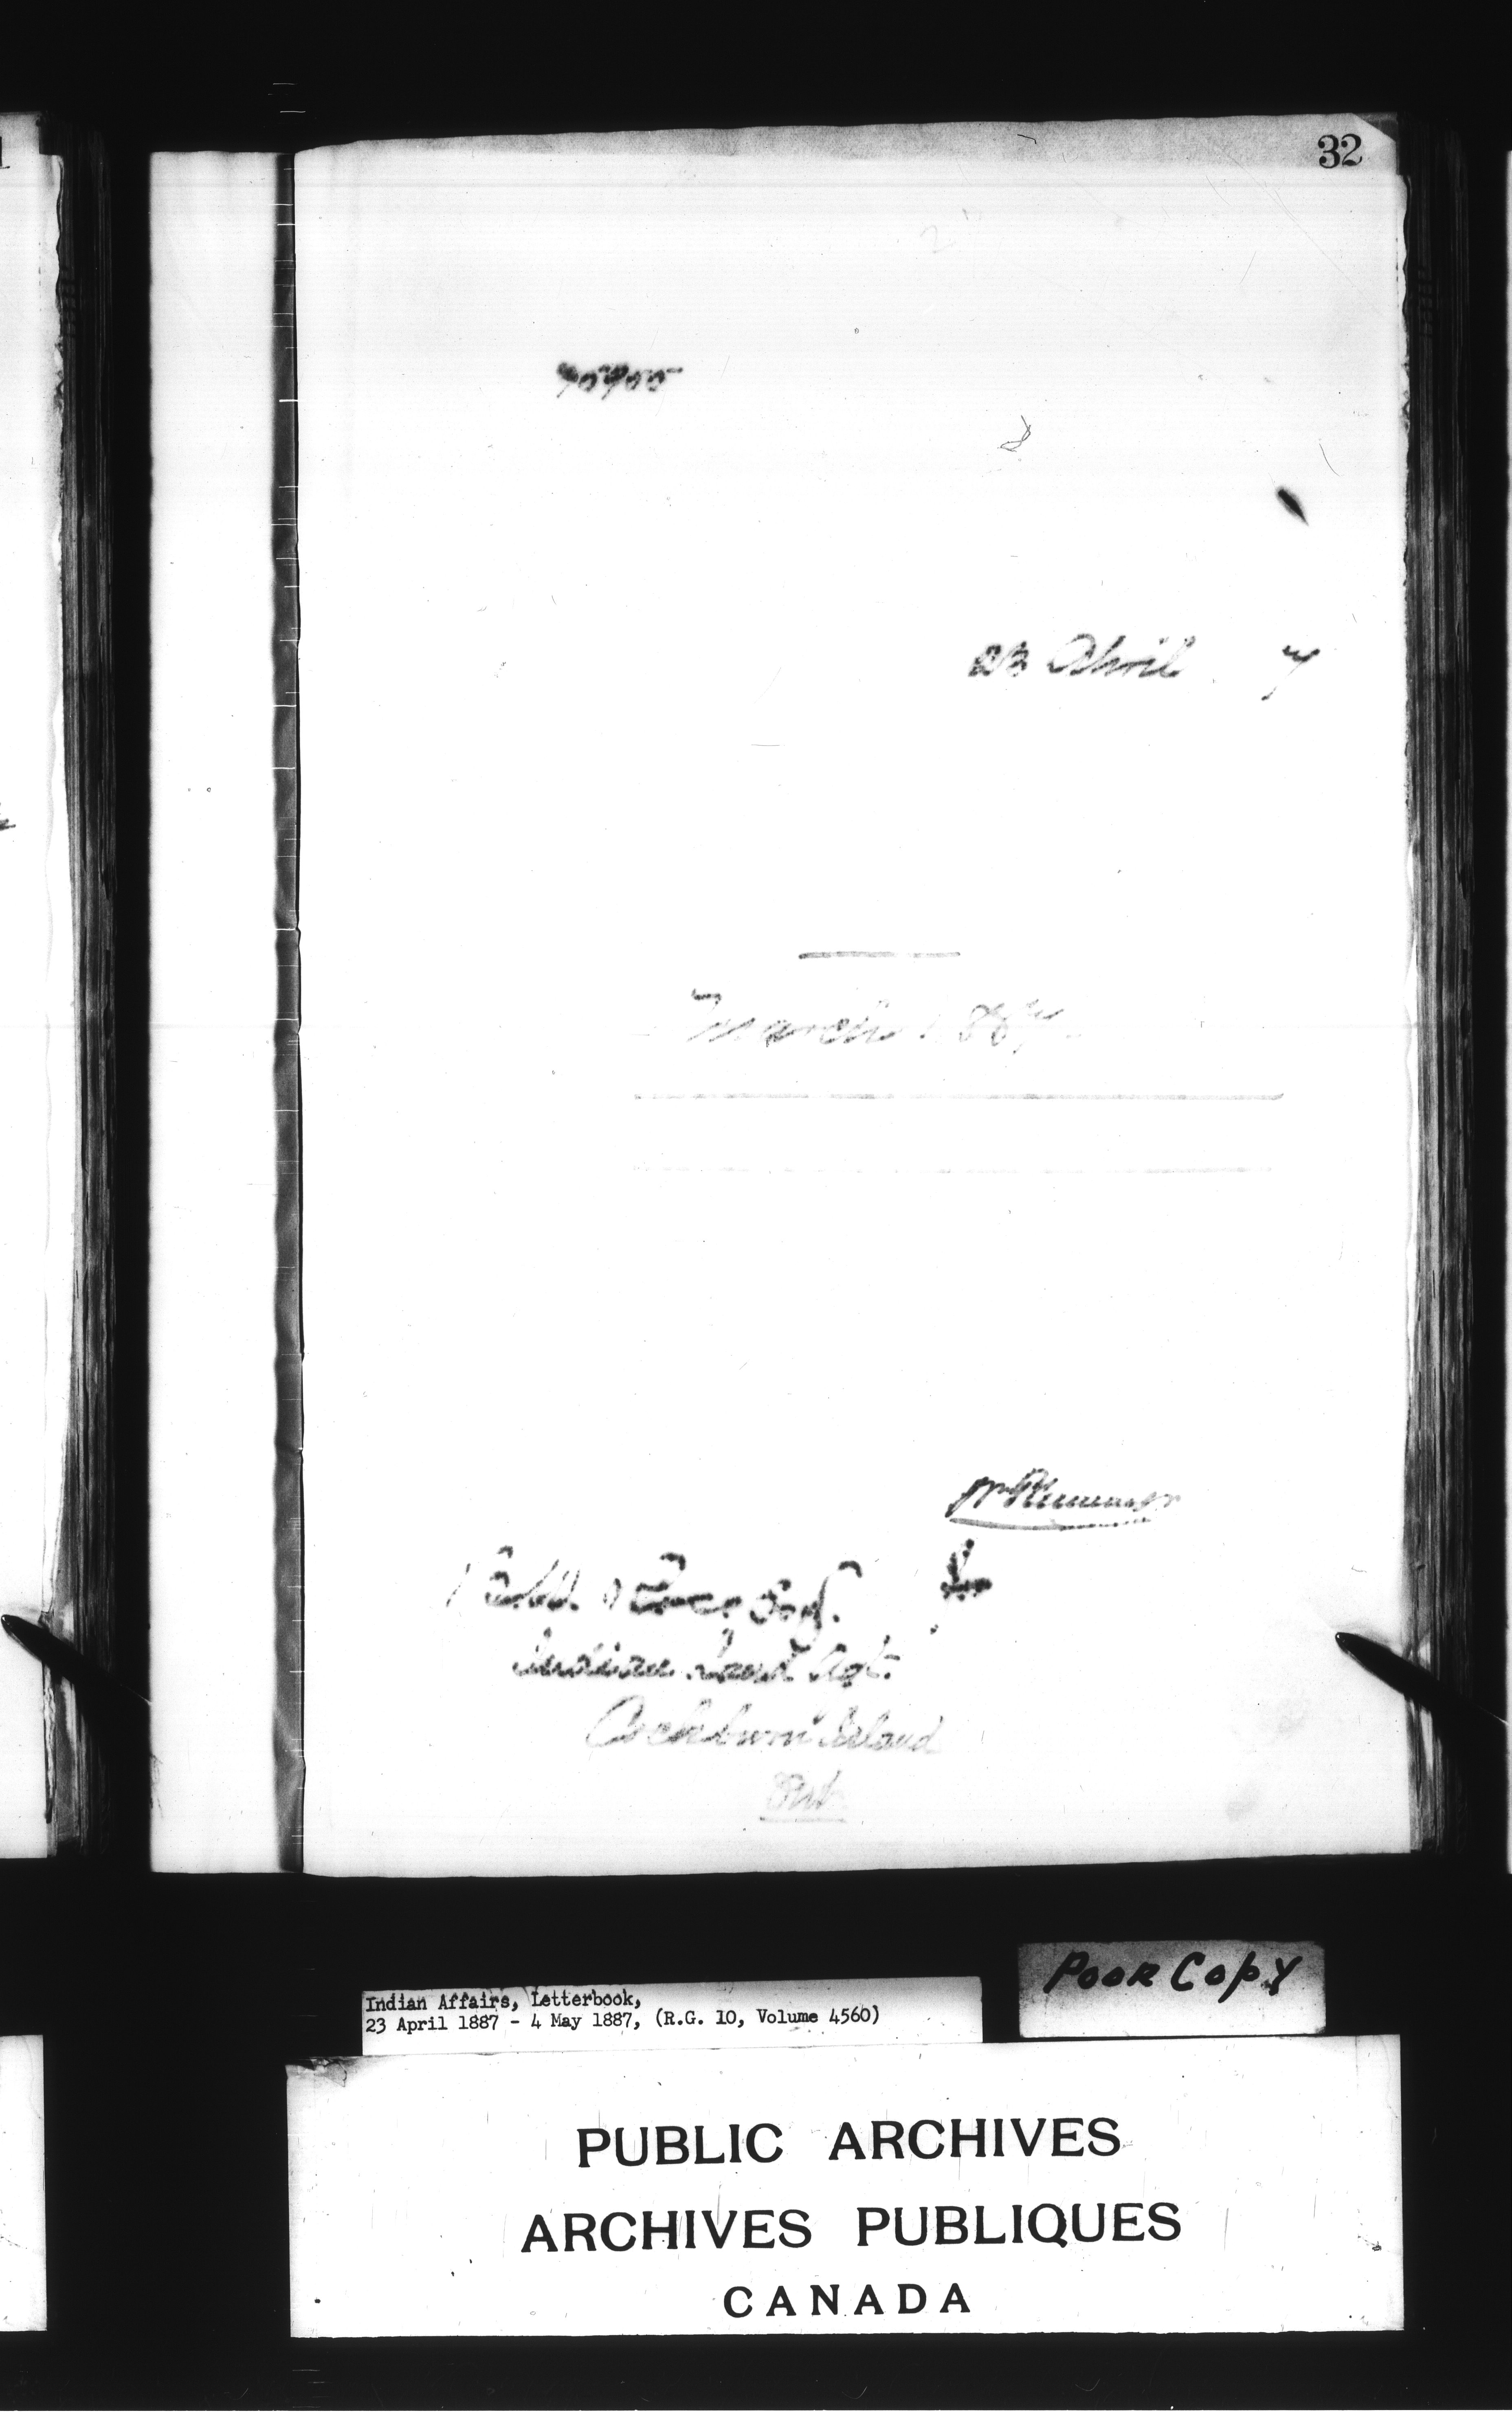 32
23 April 7
March 1887
Wm Plummer
for
Esq.
Indian Land Agt.
Cockburn Island
Ont.
Poor Copy
Indian Affairs, Letterbook,
23 April 1887 - 4 May 1887, (R.G. 10, Volume 4560)
PUBLIC ARCHIVES
ARCHIVES PUBLIQUES
CANADA